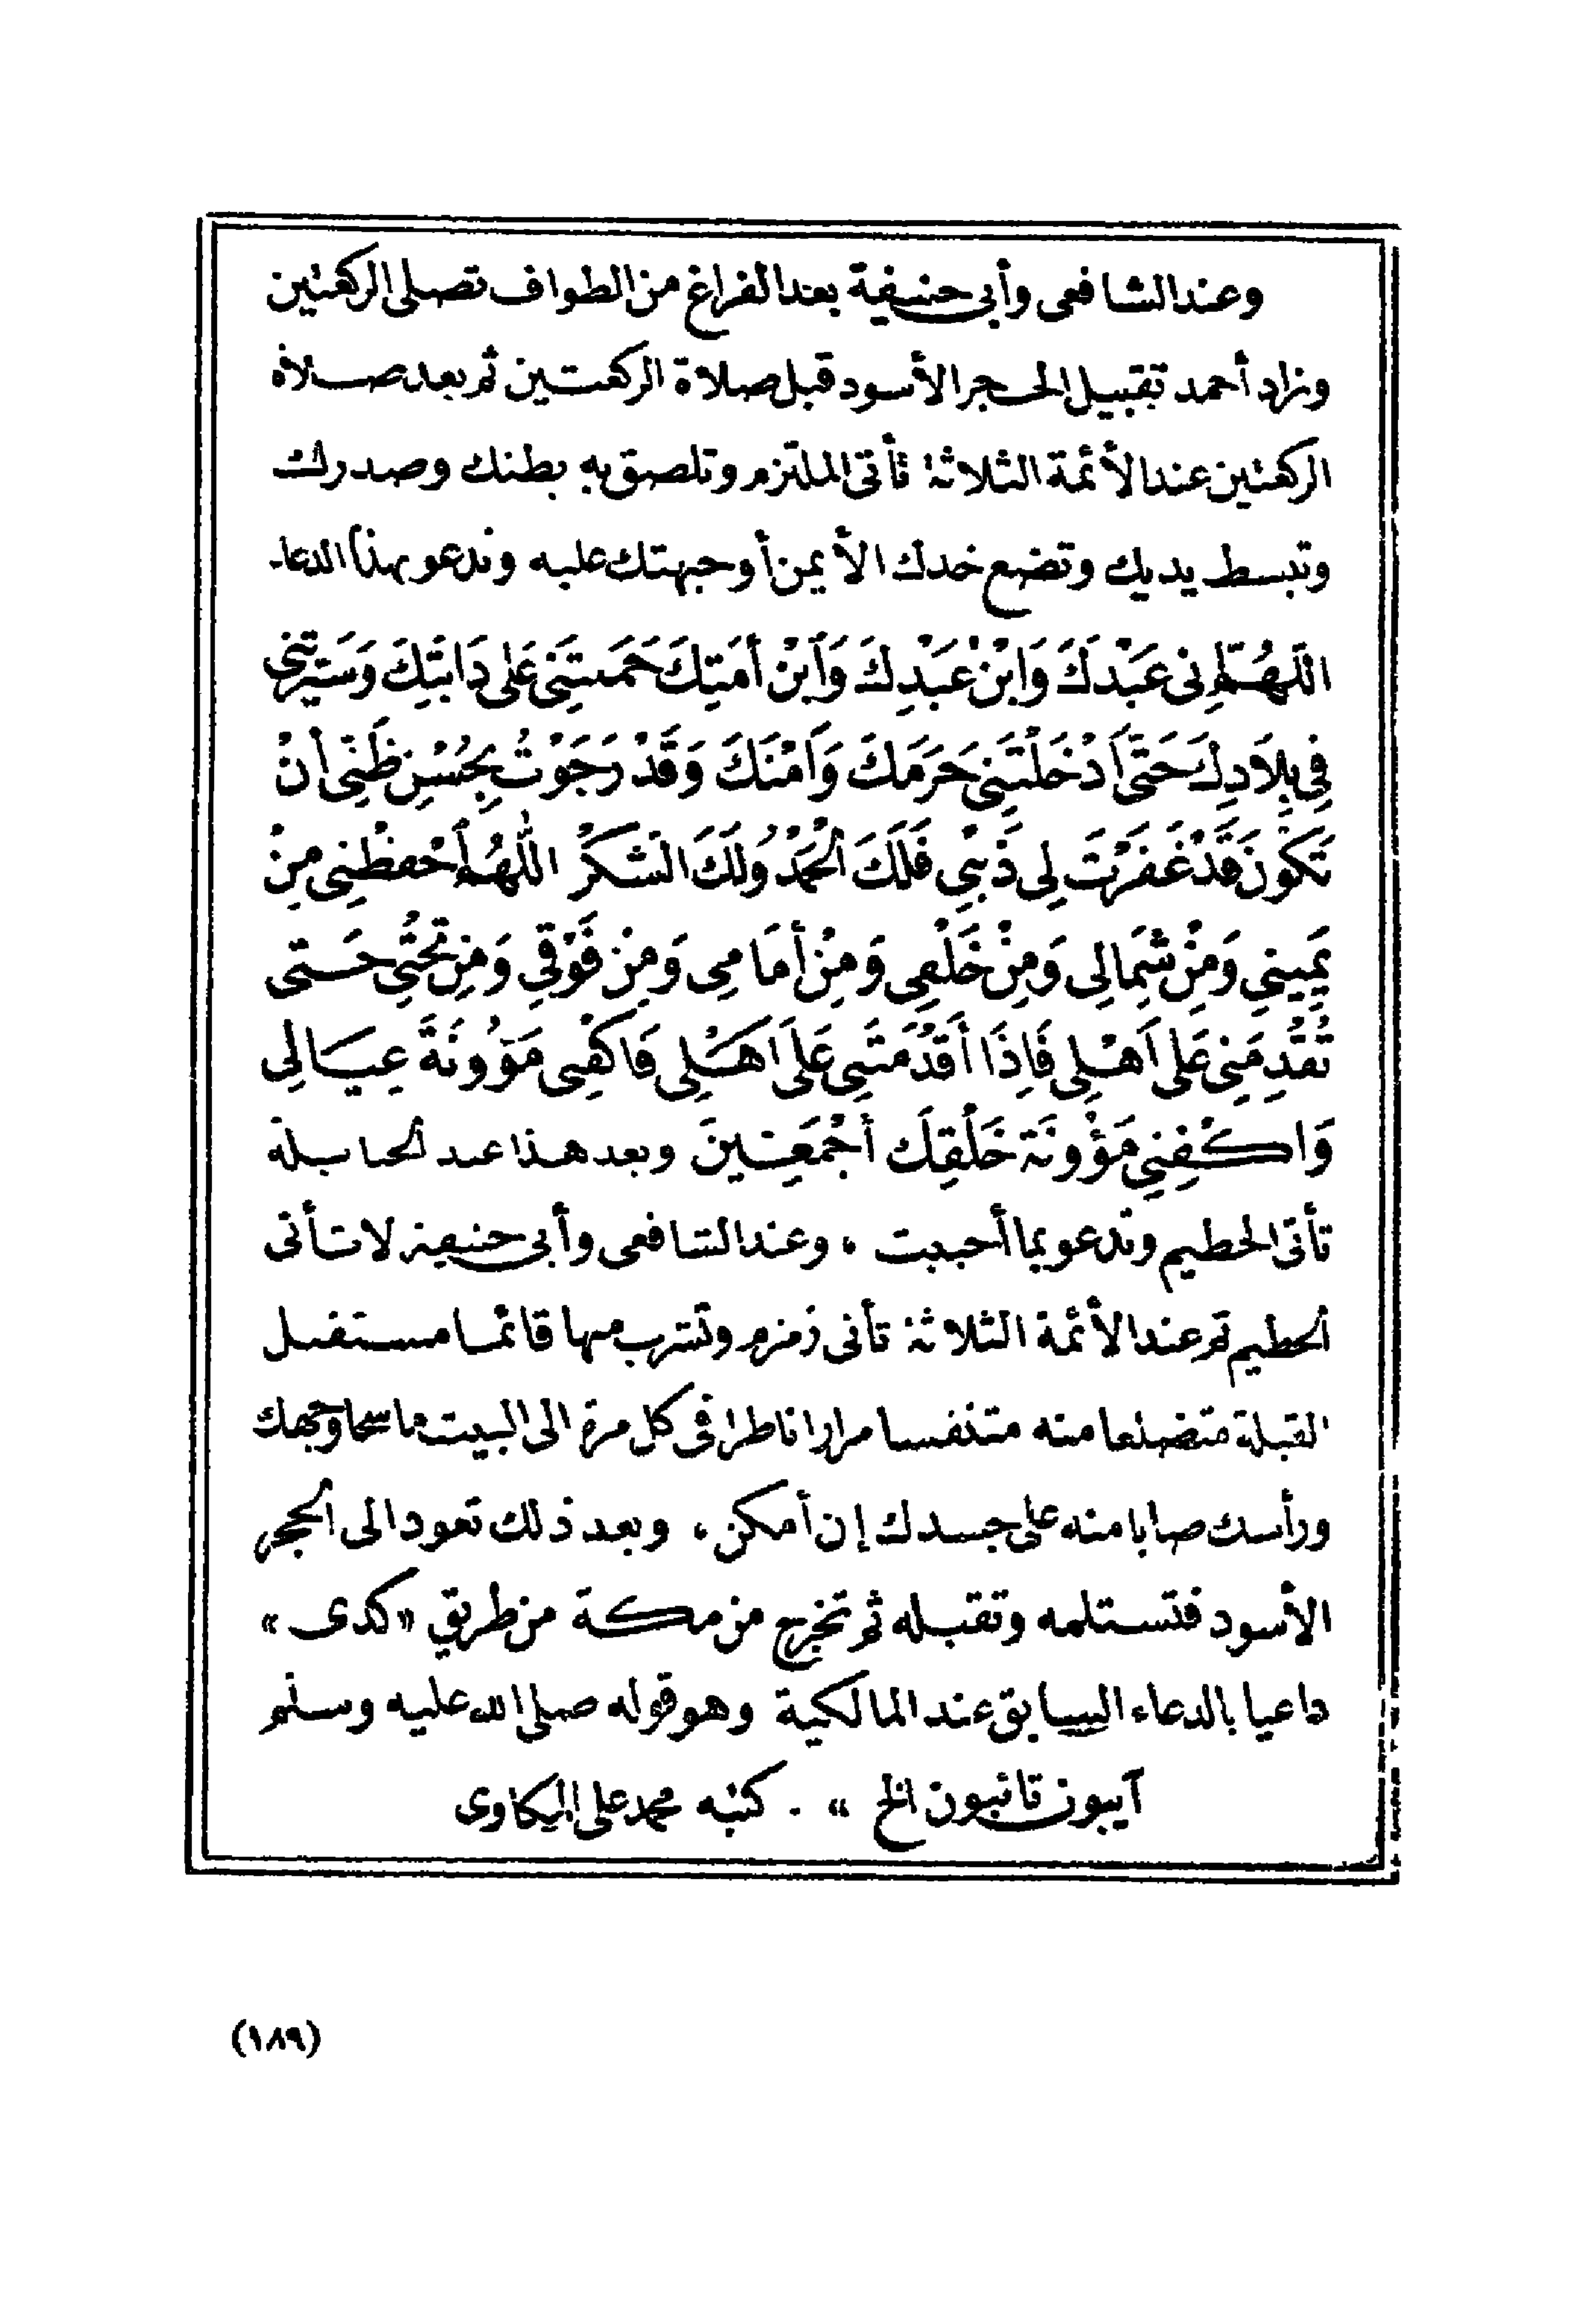 وعند الشافعى وأبى حنيفة بعد الفراغ من الطواف تصلى الركعتين
وزاد أحمد تقبيل الحجر الأسود قبل صلاة الركعتين ثم بعد صلاة
الركعتين عند الأئمة الثلاثة تأتى الملتزم وتلصق به بطنك وصدرك
وتبسط يديك وتضع خدك الأيمن أو جبهتك عليه وتدعو بهذا الدعاء
اللَّهُمَّ إِنى عَبْدَكَ وَابْنْ عَبْدِكَ وَابْن أَمَتِكَ حَمَلتَنِى عَلى دَابَّتِكَ وَسَيَّرتَنِى
فِي بِلَادِكَ حَتَّى أَدْخَلْتَنِى حَرَمَكَ وَأَمْنَكَ وَقَدْ رَجَوْتُ بِحُسْنِ ظَنِّى أَنْ
تَكُونَ قَدْ غَفَرْتَ لِى ذَنْبِي فَلَكَ الْحَمْدُ وَلَكَ الشَكْرُ اللّٰهُمَّ احْفظْنِى مِنْ
يَمِينِي وَمِنْ شِمَالِى وَمِنْ خَلْفِى وَمِنْ أَمَامِى وَمِنْ فَوْقِي وَمِن تَحْتِي حَتى
تُقْدِمَنِى عَلى أَهْلِى فَإِذَا أَقْدَمْتَنِى عَلَى أَهْلِى فَاكْفِنِى مَؤُونَةَ عِيَالِي
وَاكْفِنِي مَؤُونَة خَلْقِكَ أَجْمَعِينَ وبعد هذا عند الحنابلة
تأتى الحطيم وتدعو بما أحببت ، وعند الشافعى وأبى حنيفة لا تأتى
الحطيم ثم عند الأئمة الثلاثة تأتى زمزم وتشرب منها قائما مستقبل
القبلة متضلعا منه متنفسا مرارا ناظرا فى كل مرة الى البيت ماسحا وجهك
ورأسك صابا منه على جسدك إن أمكن ، وبعد ذلك تعود الى الحجر
الأسود فتستلمه وتقبله ثم تخرج من مكة من طريق «كدى»
داعيا بالدعاء السابق عند المالكية وهو قوله صلى الله عليه وسلم
آيبون تائبون الخ » . كتبه محمد على الميكاوى
(١٨٩)